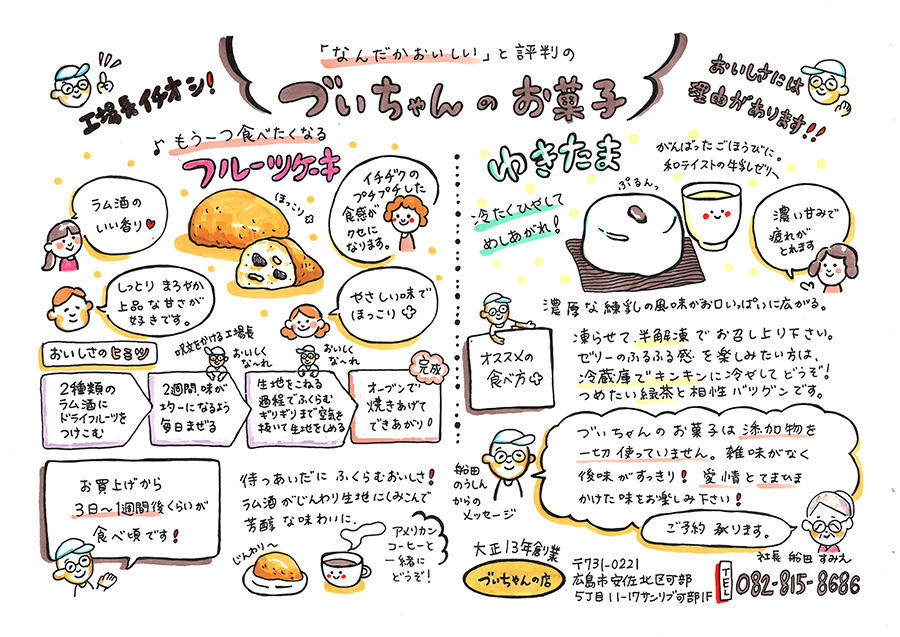 「なんだかおいしい」と評判の
づいちゃんのお菓子
工場長イチオシ！
おいしさには
理由があります!!
♪もう一つ食べたくなる
フルーツケーキ
ラム酒の
いい香り♥
ほっこり
イチヂクの
プチプチした
食感が
クセに
なります。
しっとり まろやか
上品な甘さが
好きです。
やさしい味で
ほっこり
おいしさのヒミツ
呪文をかける工場長
おいしく
な〜れ
おいしく
な〜れ
2種類の
ラム酒に
ドライフルーツを
つけこむ
2週間、味が
均一になるよう
毎日まぜる
生地をこねる
過程でふくらむ
ギリギリまで空気を
抜いて生地をしめる
完成
オーブンで
焼きあげて
できあがり！
お買上げから
3日〜1週間後くらいが
食べ頃です！
待つあいだに ふくらむおいしさ！
ラム酒がじんわり生地にしみこんで
芳醇な味わいに.
じんわり〜
アメリカン
コーヒーと
一緒に
どうぞ！
ゆきたま
がんばったごほうびに。
和テイストの牛乳ゼリー
冷たくひやして
めしあがれ！
ぷるんっ
濃い甘みで
疲れが
とれます
濃厚な練乳の風味がお口いっぱいに広がる。
オススメの
食べ方
凍らせて半解凍でお召し上り下さい。
ゼリーのふるふる感を楽しみたい方は、
冷蔵庫でキンキンに冷やしてどうぞ！
つめたい緑茶と相性バツグンです。
船田
のうしん
からの
メッセージ
づいちゃんのお菓子は添加物を
一切使っていません。雑味がなく
後味がすっきり！愛情とてまひま
かけた味をお楽しみ下さい！
ご予約 承ります。
社長 船田 すみえ
大正13年創業
づいちゃんの店
〒731-0221
広島市安佐北区可部
5丁目11-17サンリブ可部1F
TEL
082-815-8686